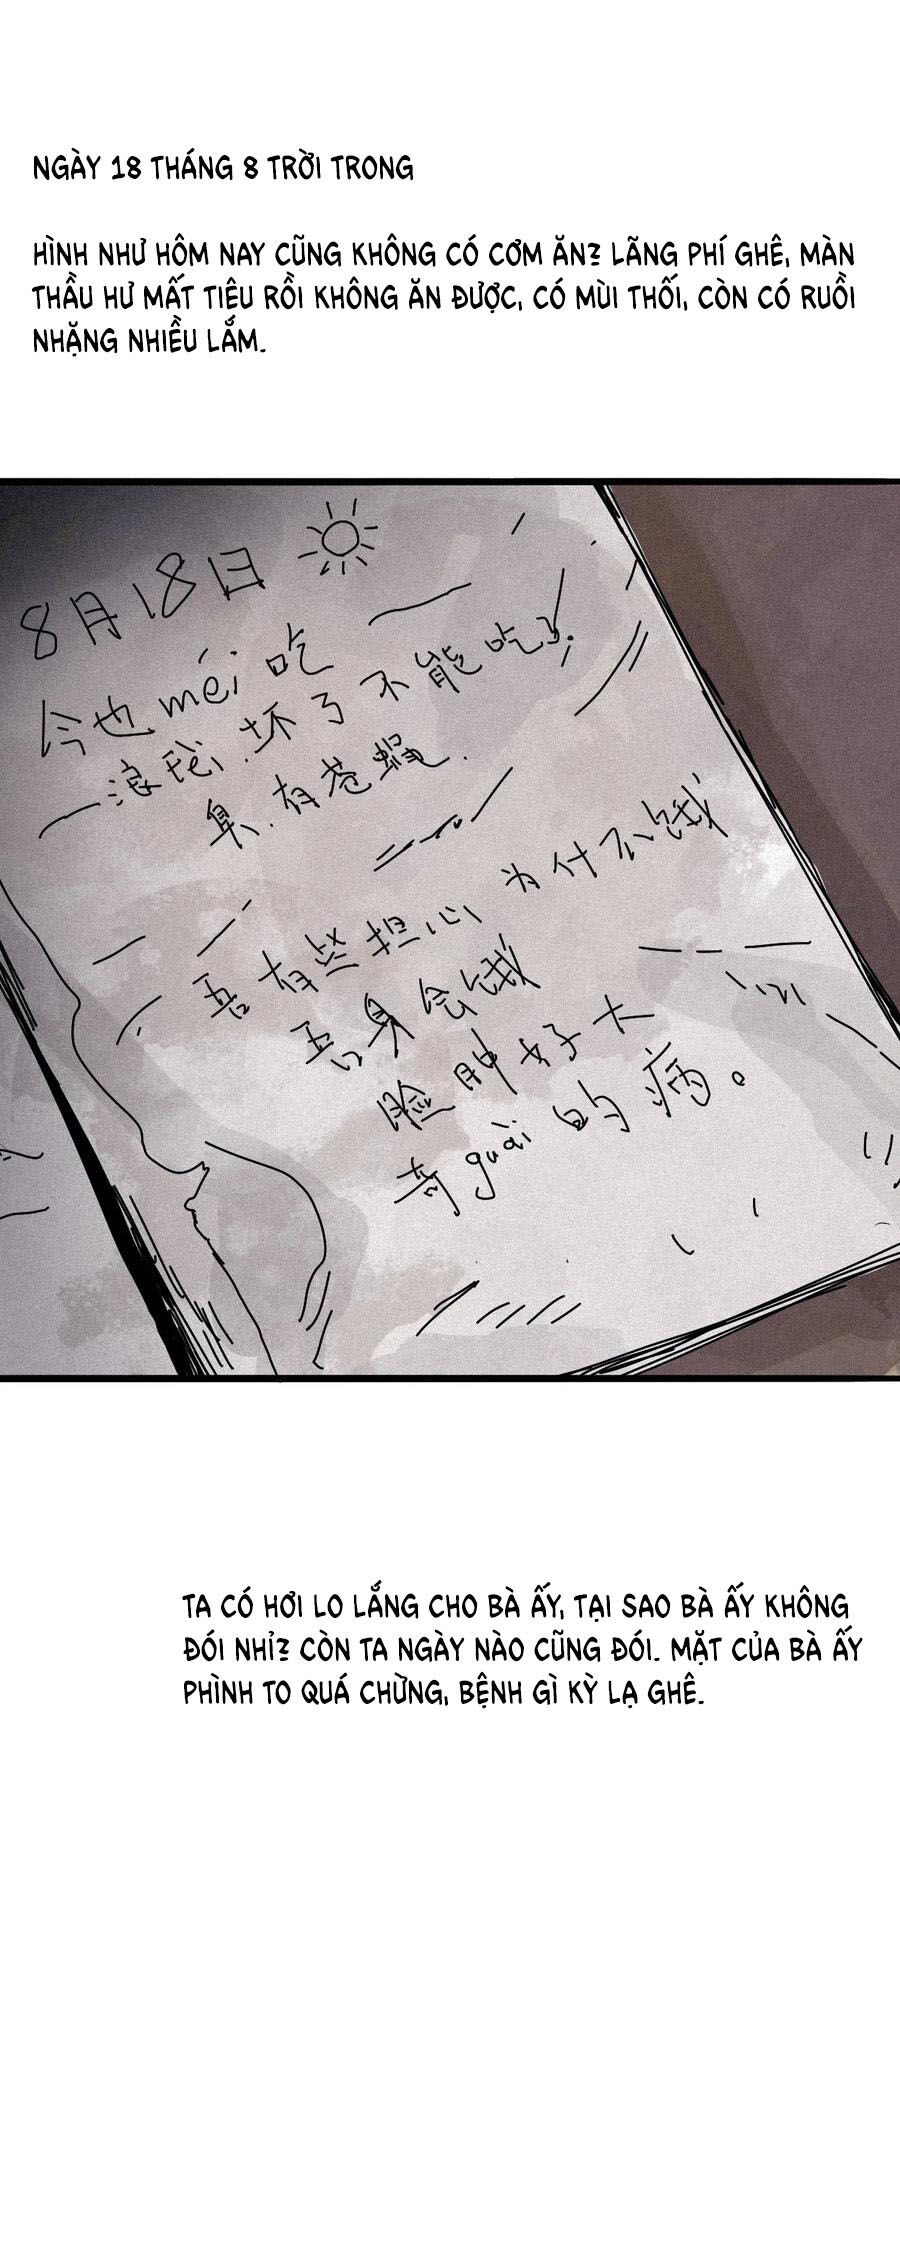 NGÀY 18 THÁNG 8 TRỜI TRONG
HÌNH NHƯ HÔM NAY CŨNG KHÔNG CÓ CƠM ĂN? LÃNG PHÍ GHÊ, MÀN
THẦU HƯ MẤT TIÊU RỒI KHÔNG ĂN ĐƯỢC, CÓ MÙI THỐI, CÒN CÓ RUỒI
NHẶNG NHIỀU LẮM.
8月18日
今也méi吃
浪 坏了不能吃了.
臭.有苍蝇.
吾有些担心为什不饿
吾身会饿
脸肿好大
奇guài的病。
TA CÓ HƠI LO LẮNG CHO BÀ ẤY, TẠI SAO BÀ ẤY KHÔNG
ĐÓI NHỈ? CÒN TA NGÀY NÀO CŨNG ĐÓI. MẶT CỦA BÀ ẤY
PHÌNH TO QUÁ CHỪNG, BỆNH GÌ KỲ LẠ GHÊ.